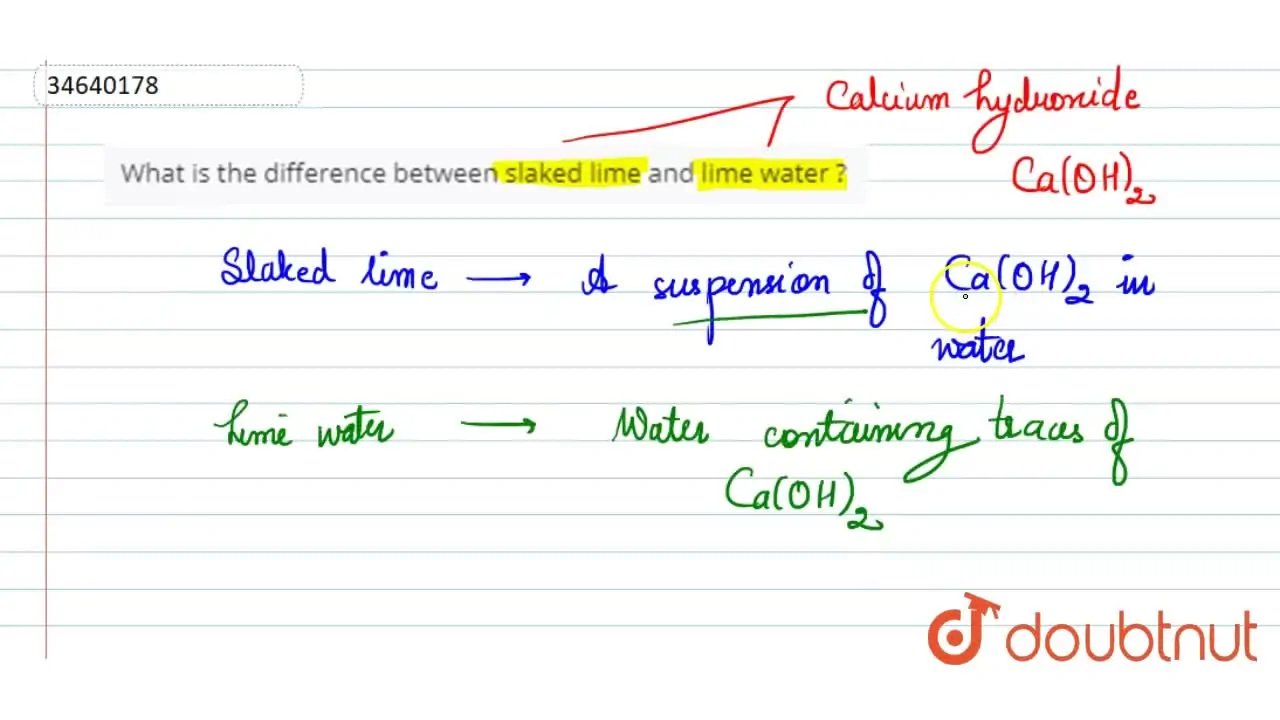 34640178
Calcium hydroxide
Ca(OH)₂
What is the difference between slaked lime and lime water ?
Slaked lime → A suspension of Ca(OH)₂ in
water
Lime water → Water containing traces of
Ca(OH)₂
doubtnut